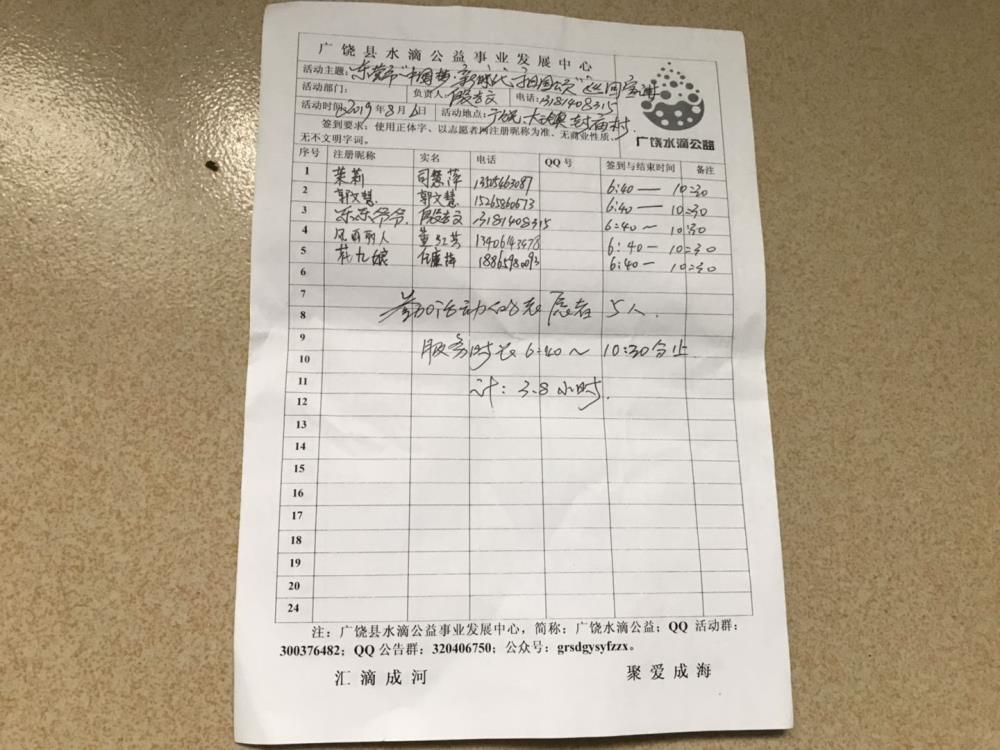 广饶县水滴公益事业发展中心
活动主题：东营市"中国梦·新时代·祖国颂"
活动部门： 负责人： 电话：13181408315
活动时间：2019年8月6日 活动地点：广饶、大王镇
签到要求：使用正体字、以志愿者网注册昵称为准、无商业性质、
无不文明字词。
广饶水滴公益
序号 注册昵称 实名 电话 QQ号 签到与结束时间 备注
1 茉莉 司慧萍 13505463087 6:40— 10:30
2 郭文慧 郭文慧 15265860673 6:40— 10:30
3 东东爷爷 13181408315 6:40~ 10:30
4 风雨丽人 董红芳 13406143478 6:40— 10:30
5 杜九娘 任廉梅 18865980093 6:40— 10:30
6
7
参加活动的志愿者 5人.
8
9
服务时长 6:40~10:30分止
10
11
计：3.8小时.
12
13
14
15
16
17
18
19
20
24
注：广饶县水滴公益事业发展中心，简称：广饶水滴公益；QQ 活动群：
300376482；QQ 公告群：320406750；公众号：grsdgysyfzzx。
汇滴成河 聚爱成海